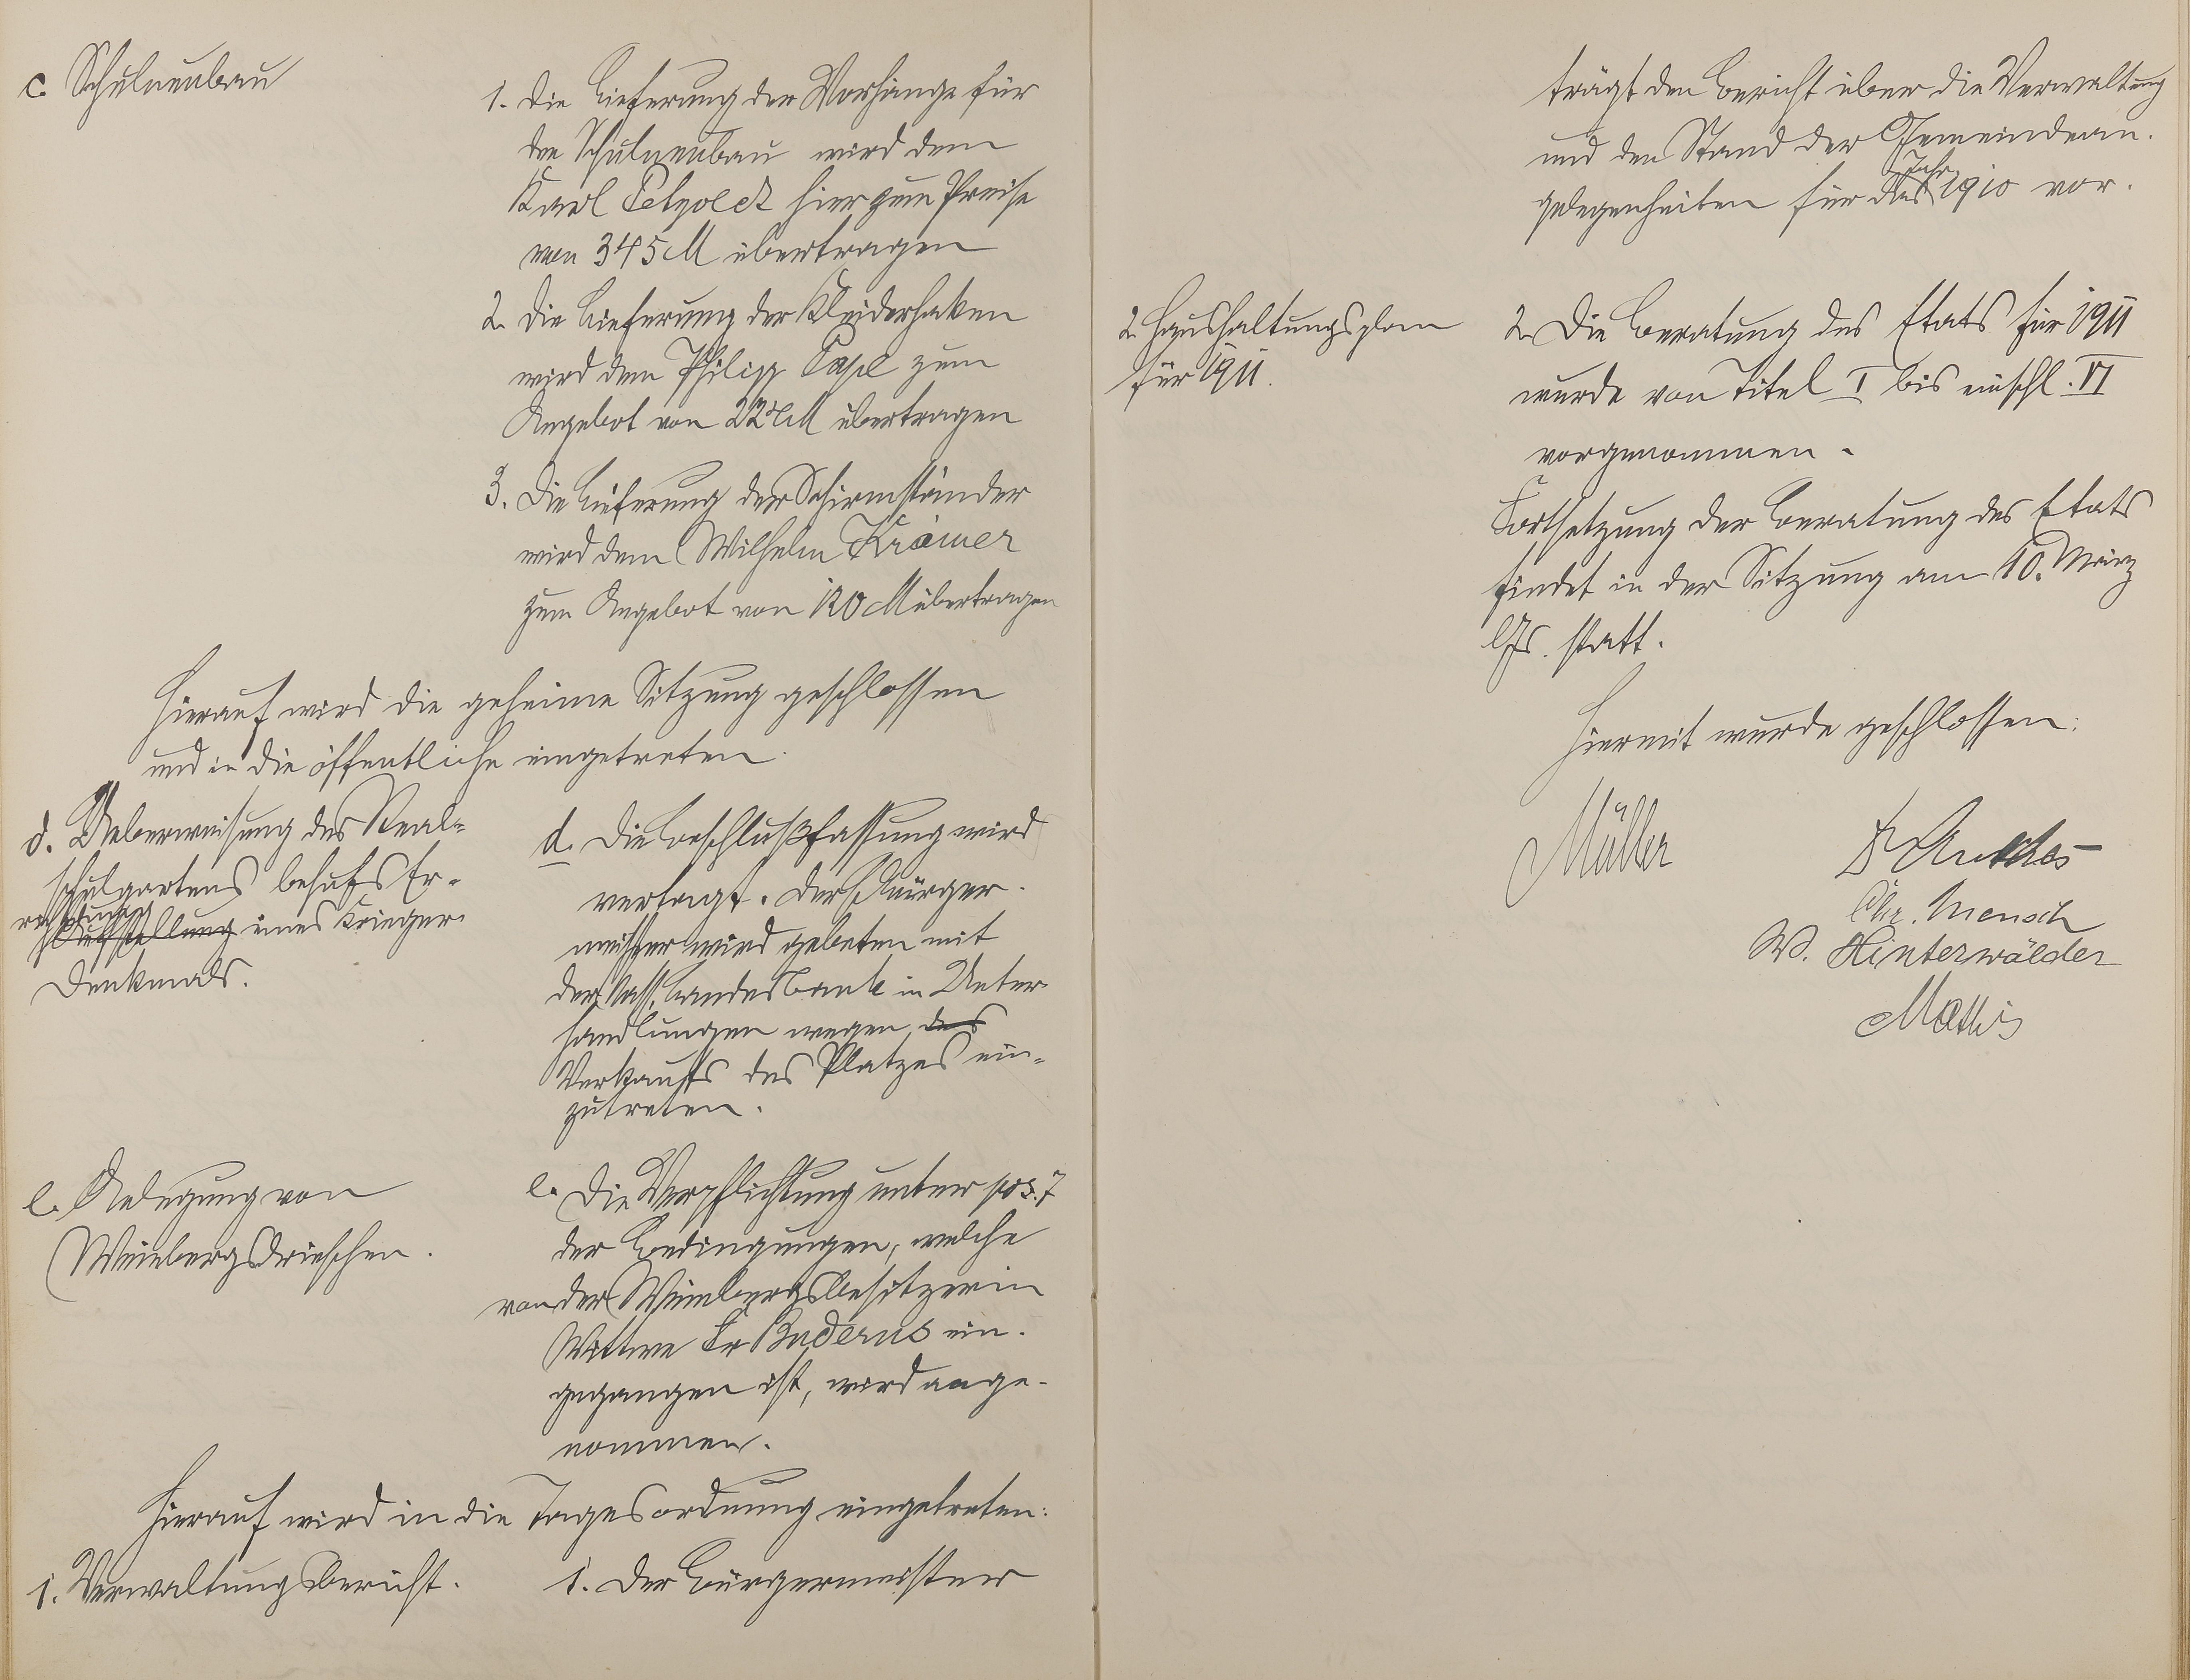 c. Schulneubau
1. Die Lieferung der Vorhänge für
den Schulneubau wird dem
Karl Petzoldt hier zum Preise
von 345 M übertragen
2. Die Lieferung der Kleiderhaken
wird dem Philipp zum
Angebot von M übertragen
3. Die Lieferung der Schirmständer
wird dem Wilhelm Krämer
zum Angebot von 120 M übertragen
Hierauf wird die geheime Sitzung geschlossen
und in die öffentliche eingetreten.
d. Ueberweisung des Real-
schulgartens behufs Er-
richtung
Aufstellung eines Krieger-
Denkmals.
d. Die Beschlußfassung wird
vertagt. Der H Bürger-
meister wird gebeten mit
der Nass. Landesbank in Unter-
handlungen wegen des
Verkaufs des Platzes ein-
zutreten.
e. Anlegung von
Weinbergsdrieschen.
e. Die Verpflichtung unter pos. 7
der Bedingungen, welche
von der Weinbergsbesitzerin
Wittwe Fr Buderus ein-
gegangen ist, wird ange-
nommen.
Hierauf wird in die Tagesordnung eingetreten:
1. Verwaltungsbericht.
1. Der Bürgermeister
trägt den Bericht über die Verwaltung
und den Stand der Gemeindean-
Jahr
gelegenheiten für das 1910 vor.
2. Haushaltungsplan
für 1911.
2. Die Beratung des Etats für 1911
wurde von Titel I bis einschl. VI
vorgenommen.
Fortsetzung der Beratung des Etats
findet in der Sitzung am 10. März
lJs. statt.
Hiermit wurde geschlossen:
Müller
Chr. Mensch
W. Hinterwälder
Mathis